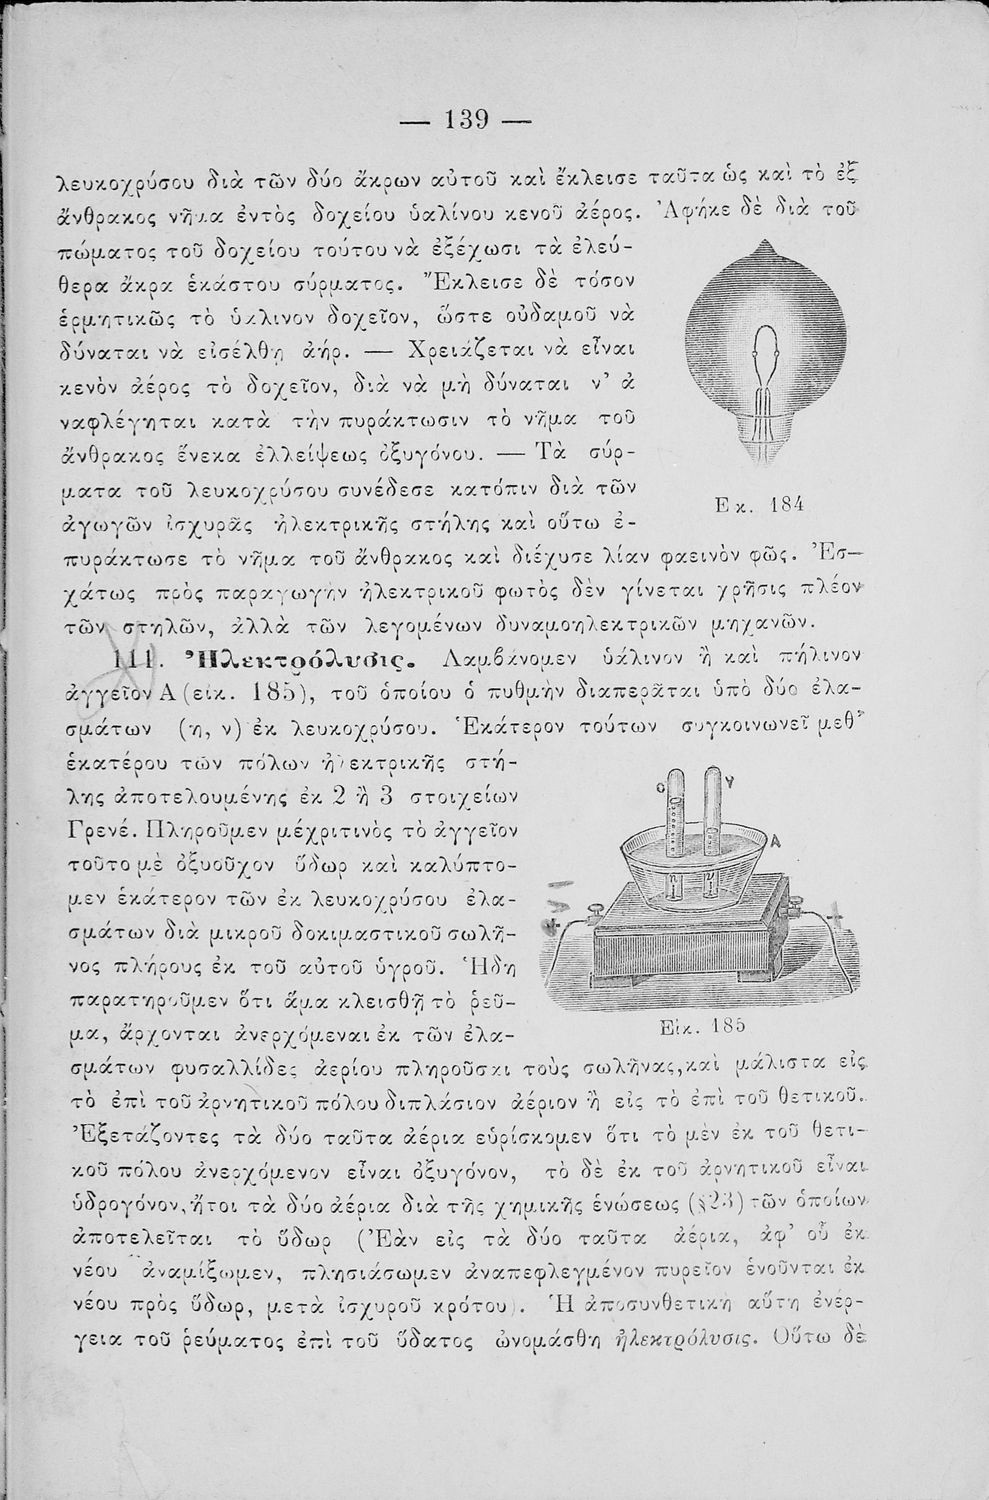 — 139 —
λευκοχρύσου διὰ τῶν δύο ἄκρων αὐτοῦ καὶ ἔκλεισε ταῦτα ὡς καὶ τὸ ἐξ
ἄνθρακος νῆμα ἐντὸς δοχείου ὑαλίνου κενοῦ ἀέρος. Ἀφῆκε δὲ διὰ τοῦ
πώματος τοῦ δοχείου τούτου νὰ ἐξέχωσι τὰ ἐλεύ-
θερα ἄκρα ἑκάστου σύρματος. Ἔκλεισε δὲ τόσον
ἑρμητικῶς τὸ ὑάλινον δοχεῖον, ὥστε οὐδαμοῦ νὰ
δύναται νὰ εἰσέλθῃ ἀήρ. — Χρειάζεται νὰ εἶναι
κενὸν ἀέρος τὸ δοχεῖον, διὰ νὰ μὴ δύναται ν' ἀ
ναφλέγηται κατὰ τὴν πυράκτωσιν τὸ νῆμα τοῦ
ἄνθρακος ἕνεκα ἐλλείψεως ὀξυγόνου. — Τὰ σύρ-
ματα τοῦ λευκοχρύσου συνέδεσε κατόπιν διὰ τῶν
ἀγωγῶν ἰσχυρᾶς ἠλεκτρικῆς στήλης καὶ οὕτω ἐ-
Εκ. 184
πυράκτωσε τὸ νῆμα τοῦ ἄνθρακος καὶ διέχυσε λίαν φαεινὸν φῶς. Ἐσ—
χάτως πρὸς παραγωγὴν ἠλεκτρικοῦ φωτὸς δὲν γίνεται χρῆσις πλέον
τῶν στηλῶν, ἀλλὰ τῶν λεγομένων δυναμοηλεκτρικῶν μηχανῶν.
111. Ἠλεκτρόλυσις. Λαμβάνομεν ὑάλινον ἢ καὶ πήλινον
ἀγγεῖον Α (εἰκ. 185), τοῦ ὁποίου ὁ πυθμὴν διαπερᾶται ὑπὸ δύο ἐλα-
σμάτων (η, ν) ἐκ λευκοχρύσου. Ἑκάτερον τούτων συγκοινωνεῖ μεθ'
ἑκατέρου τῶν πόλων ἠλεκτρικῆς στή-
λης ἀποτελουμένης ἐκ 2 ἢ 3 στοιχείων
Γρενέ. Πληροῦμεν μέχρι τινὸς τὸ ἀγγεῖον
τοῦτο μὲ ὀξυοῦχον ὕδωρ καὶ καλύπτο-
μεν ἑκάτερον τῶν ἐκ λευκοχρύσου ἐλα-
σμάτων διὰ μικροῦ δοκιμαστικοῦ σωλῆ-
νος πλήρους ἐκ τοῦ αὐτοῦ ὑγροῦ. Ἤδη
παρατηροῦμεν ὅτι ἅμα κλεισθῇ τὸ ῥεῦ-
μα, ἄρχονται ἀνερχόμεναι ἐκ τῶν ἐλα-
Εἰκ. 185
σμάτων φυσαλλίδες ἀερίου πληροῦσαι τοὺς σωλῆνας, καὶ μάλιστα εἰς
τὸ ἐπὶ τοῦ ἀρνητικοῦ πόλου διπλάσιον ἀέριον ἢ εἰς τὸ ἐπὶ τοῦ θετικοῦ.
Ἐξετάζοντες τὰ δύο ταῦτα ἀέρια εὑρίσκομεν ὅτι τὸ μὲν ἐκ τοῦ θετι-
κοῦ πόλου ἀνερχόμενον εἶναι ὀξυγόνον, τὸ δὲ ἐκ τοῦ ἀρνητικοῦ εἶναι
ὑδρογόνον, ἤτοι τὰ δύο ἀέρια διὰ τῆς χημικῆς ἑνώσεως (§23) τῶν ὁποίων
ἀποτελεῖται τὸ ὕδωρ (Ἐὰν εἰς τὰ δύο ταῦτα ἀέρια, ἀφ' οὗ ἐκ
νέου ἀναμίξωμεν, πλησιάσωμεν ἀναπεφλεγμένον πυρεῖον ἑνοῦνται ἐκ
νέου πρὸς ὕδωρ, μετὰ ἰσχυροῦ κρότου). Ἡ ἀποσυνθετικὴ αὕτη ἐνέρ-
γεια τοῦ ῥεύματος ἐπὶ τοῦ ὕδατος ὠνομάσθη ἠλεκτρόλυσις. Οὕτω δὲ